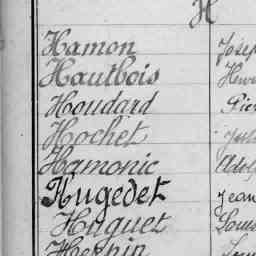 H
Hamon Josep
Hautbois Henri
Houdard Pier
Hochet
Hamonic Adolp
Hugedet Jean
Huguet Louis
Hernin